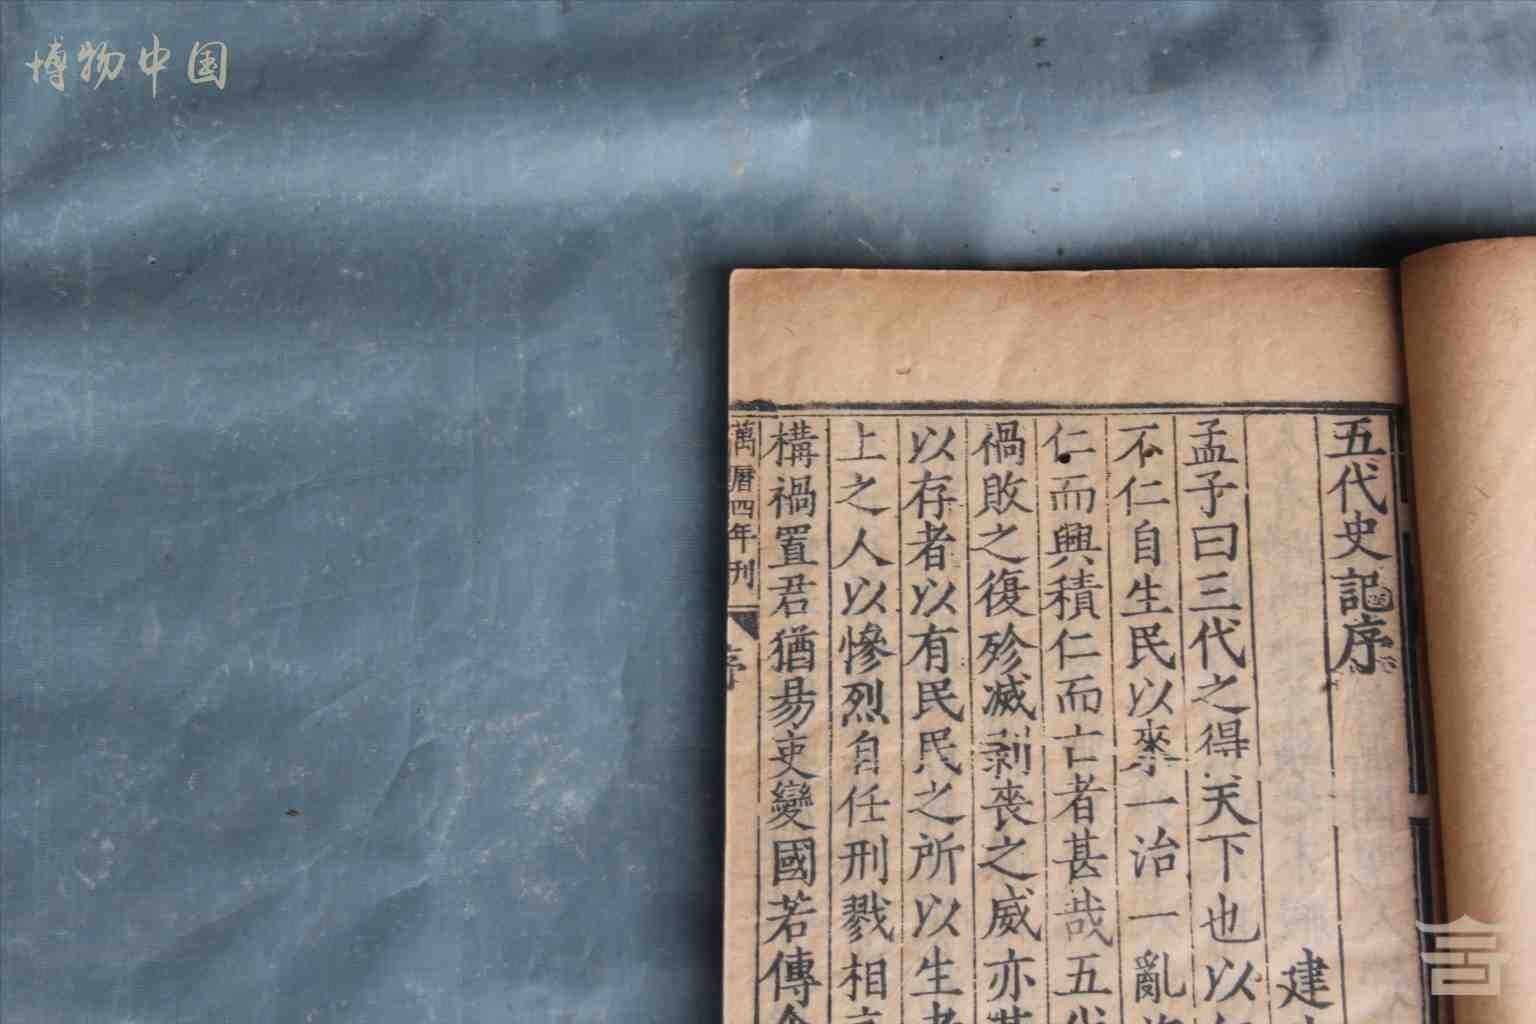 博物中国
五代史記序
建
孟子曰三代之得天下也以
不仁自生民以來一治一亂
仁而興積仁而亡者甚哉五代
禍敗之復殄滅剥喪之威亦
以存者以有民民之所以生者
上之人以慘烈自任刑戮相
構禍置君猶易吏變國若傳
萬曆四年刊
序